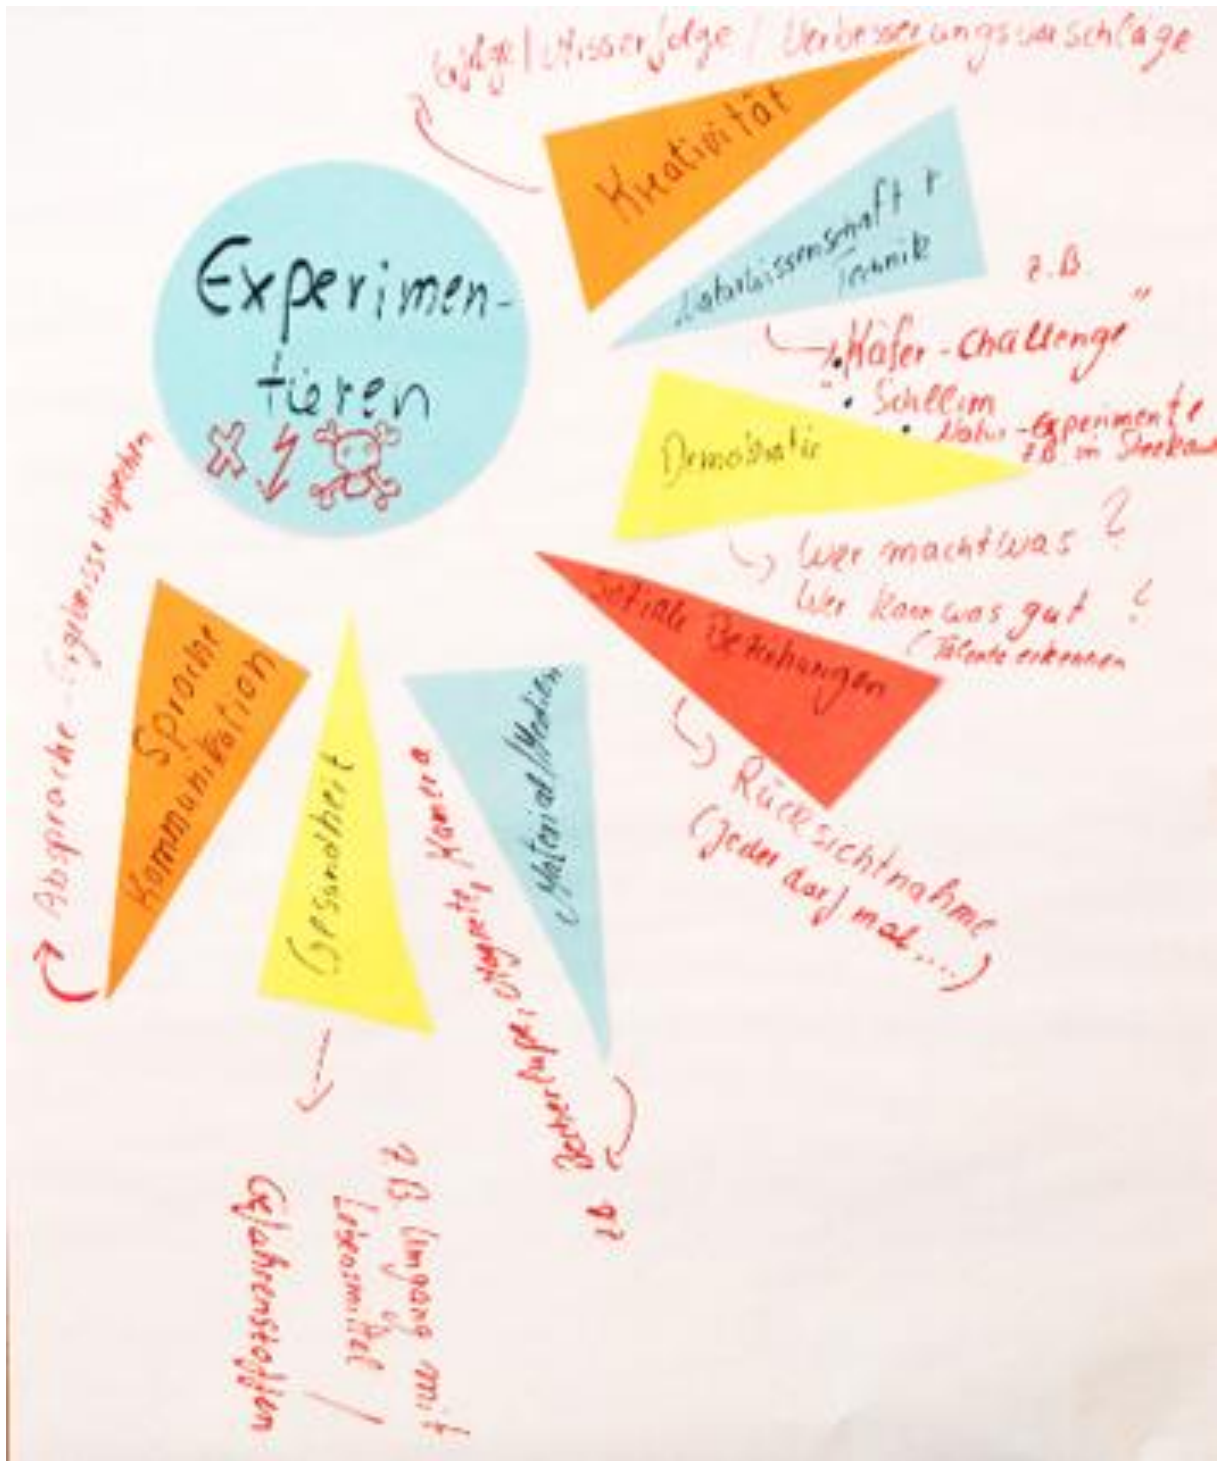 Erfolge / Misserfolge / Verbesserungsvorschläge
Kreativität
Experimen-
tieren
Naturwissenschaft +
Technik
z.B.
"Käfer-Challenge"
• Schleim
• Natur-Experimente
z.B. im
Demokratie
Wer macht was ?
Wer kann was gut ?
(Talente erkennen
Soziale Beziehungen
Rücksichtnahme
(jeder darf mal....)
Material/Medien
z.B.
Becherlupe, Magnete, Kamera
Gesundheit
z.B Umgang mit
/
Gefahrenstoffen
Sprache
Kommunikation
Absprache - Ergebnisse besprechen